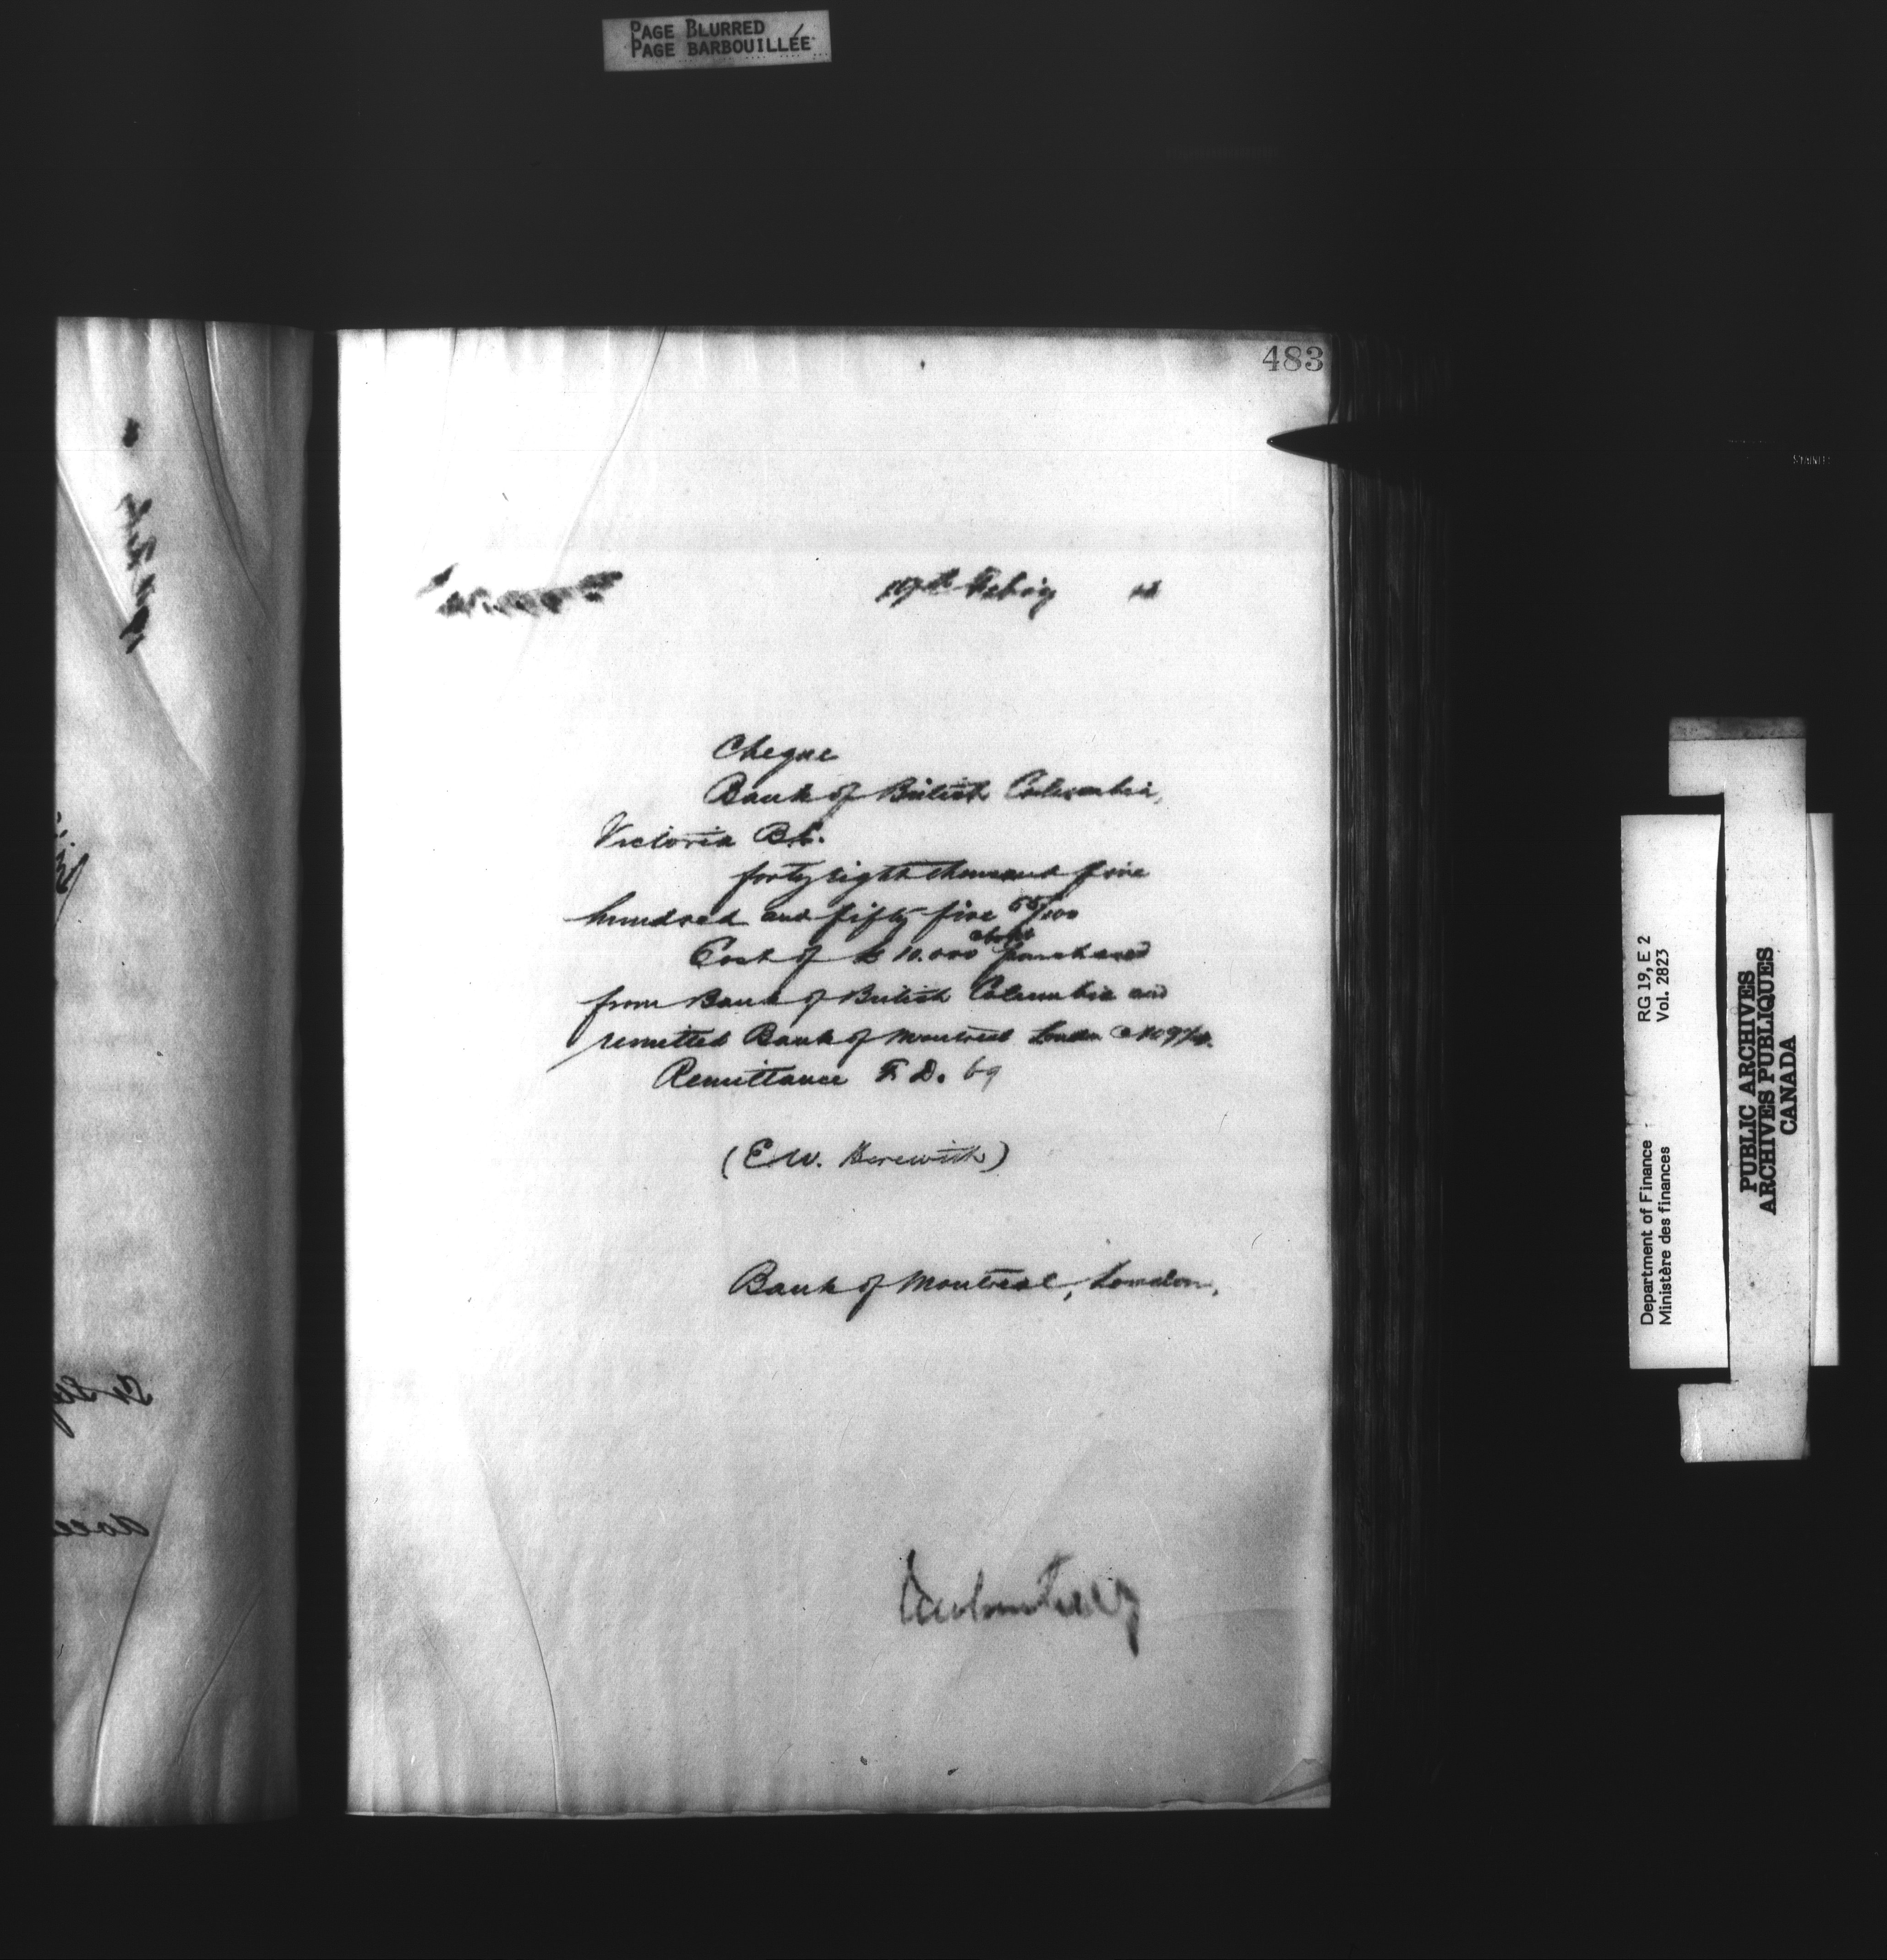 PAGE BLURRED
PAGE BARBOUILLÉE
483
Cheque
Bank of British Columbia,
Victoria B.C.
forty eight thousand five
hundred and fifty five 55/100
Cost of £ 10.000 purchased
from Bank of British Columbia and
remitted Bank of Montreal London @
Remittance F. D. 69
(E.W. Herewith)
Bank of Montreal, London,
Department of Finance RG 19, E 2
Ministère des finances Vol. 2823
PUBLIC ARCHIVES
ARCHIVES PUBLIQUES
CANADA